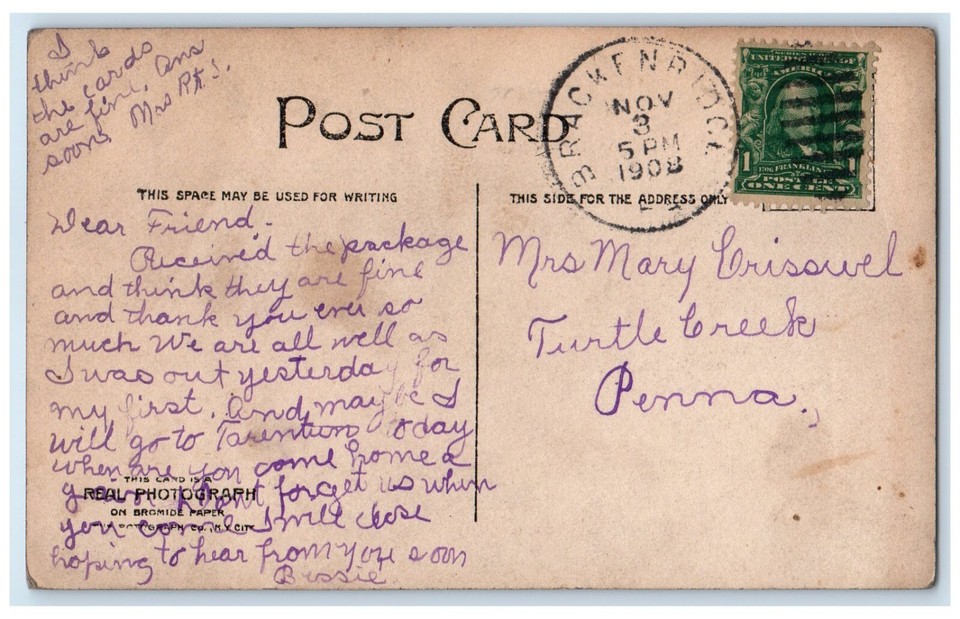 I
think
the cards
are fine. Ans
soon Mrs
POST CARD
BRACKENRIDGE
NOV
3
5 PM
1908
PA
SERIES 1902
UNITED STATES OF
AMERICA
1 1
FRANKLIN
POSTAGE
ONE CENT
THIS SPACE MAY BE USED FOR WRITING
THIS SIDE FOR THE ADDRESS ONLY
Dear Friend.
Received the package
and think they are fine
and thank you ever so
much We are all well as
I was out yesterday for
my first. And maybe I
will go to Tarentum today
when are you come home a
gain dont forget us when
you come I will close
hoping to hear from you soon
Bessie
THIS CARD IS A
REAL PHOTOGRAPH
ON BROMIDE PAPER
CO., N.Y. CITY
Mrs Mary Crisswel
Turtle Creek
Penna.